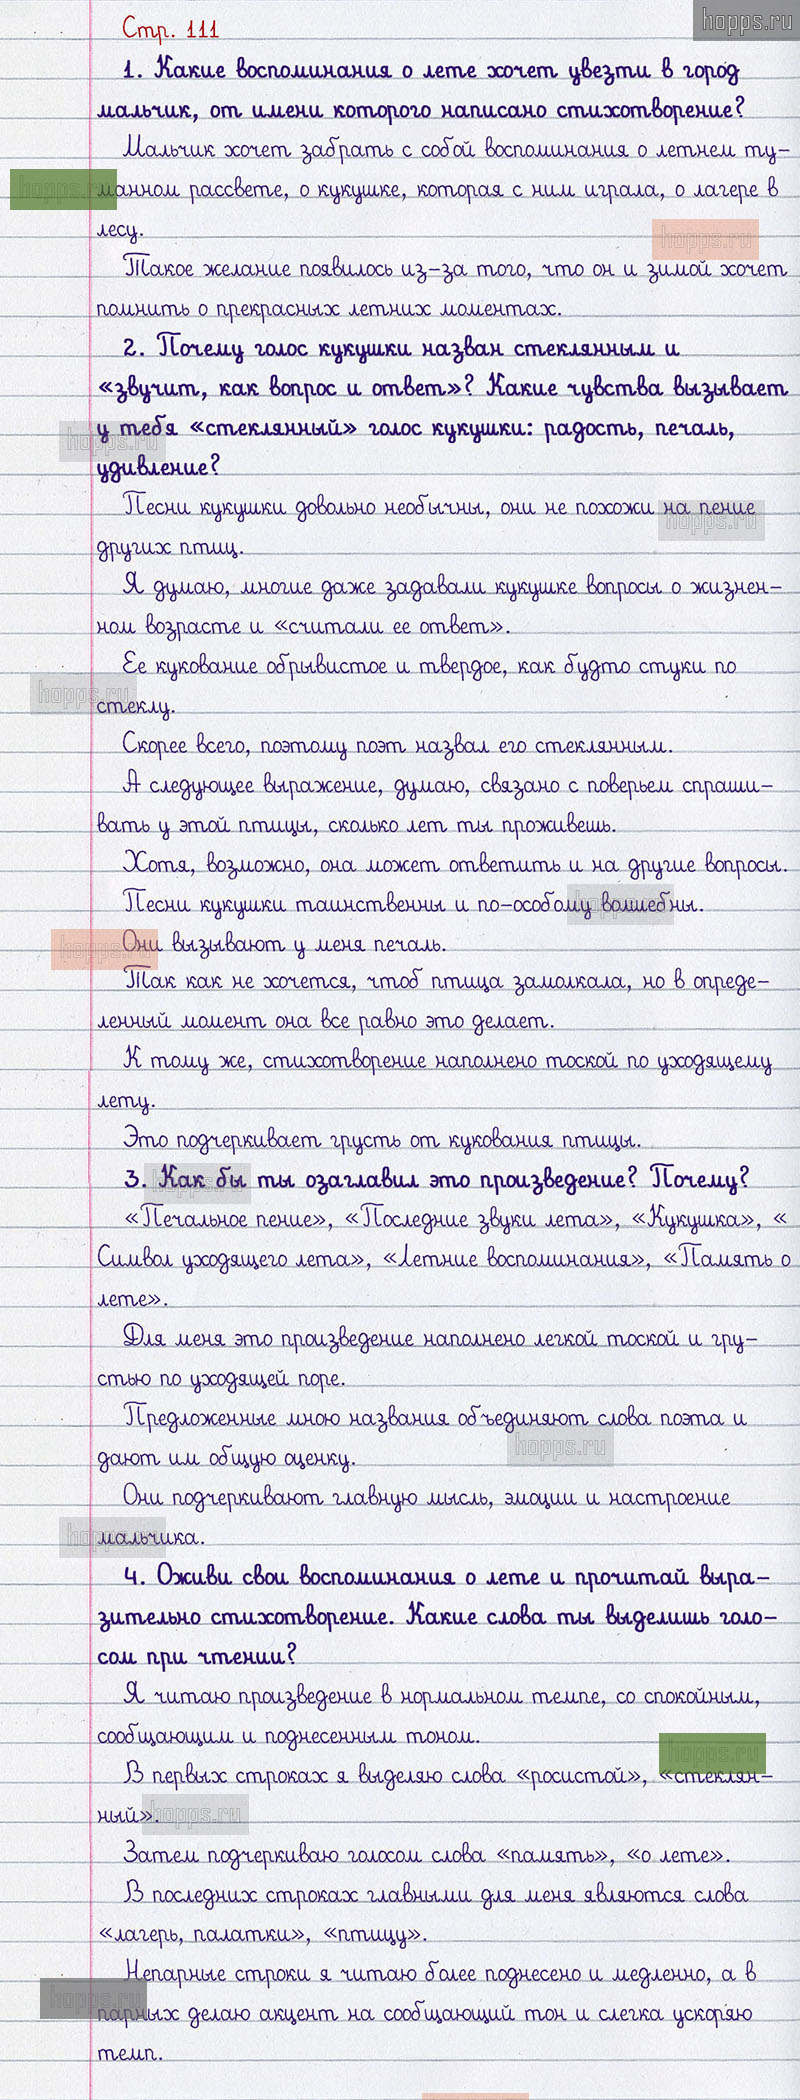 hopps.ru
Стр. 111
1. Какие воспоминания о лете хочет увезти в город
мальчик, от имени которого написано стихотворение?
Мальчик хочет забрать с собой воспоминания о летнем ту-
манном рассвете, о кукушке, которая с ним играла, о лагере в
hopps.ru
лесу.
hopps.ru
Такое желание появилось из-за того, что он и зимой хочет
помнить о прекрасных летних моментах.
2. Почему голос кукушки назван стеклянным и
«звучит, как вопрос и ответ»? Какие чувства вызывает
у тебя «стеклянный» голос кукушки: радость, печаль,
hopps.ru
удивление?
Песни кукушки довольно необычны, они не похожи на пение
hopps.ru
других птиц.
Я думаю, многие даже задавали кукушке вопросы о жизнен-
ном возрасте и «считали ее ответ».
Ее кукование обрывистое и твердое, как будто стуки по
hopps.ru
стеклу.
Скорее всего, поэтому поэт назвал его стеклянным.
А следующее выражение, думаю, связано с поверьем спраши-
вать у этой птицы, сколько лет ты проживешь.
Хотя, возможно, она может ответить и на другие вопросы.
Песни кукушки таинственны и по-особому волшебны.
hopps.ru
Они вызывают у меня печаль.
hopps.ru
Так как не хочется, чтоб птица замолкала, но в опреде-
ленный момент она все равно это делает.
К тому же, стихотворение наполнено тоской по уходящему
лету.
Это подчеркивает грусть от кукования птицы.
3. Как бы ты озаглавил это произведение? Почему?
hopps.ru
«Печальное пение», «Последние звуки лета», «Кукушка», «
Символ уходящего лета», «Летние воспоминания», «Память о
лете».
Для меня это произведение наполнено легкой тоской и гру-
стью по уходящей поре.
Предложенные мною названия объединяют слова поэта и
hopps.ru
дают им общую оценку.
Они подчеркивают главную мысль, эмоции и настроение
мальчика.
hopps.ru
4. Оживи свои воспоминания о лете и прочитай выра-
зительно стихотворение. Какие слова ты выделишь голо-
сом при чтении?
Я читаю произведение в нормальном темпе, со спокойным,
сообщающим и поднесенным тоном.
hopps.ru
В первых строках я выделяю слова «росистой», «стеклян-
ный».
hopps.ru
Затем подчеркиваю голосом слова «память», «о лете».
В последних строках главными для меня являются слова
«лагерь, палатки», «птицу».
Непарные строки я читаю более поднесено и медленно, а в
hopps.ru
парных делаю акцент на сообщающий тон и слегка ускоряю
темп.